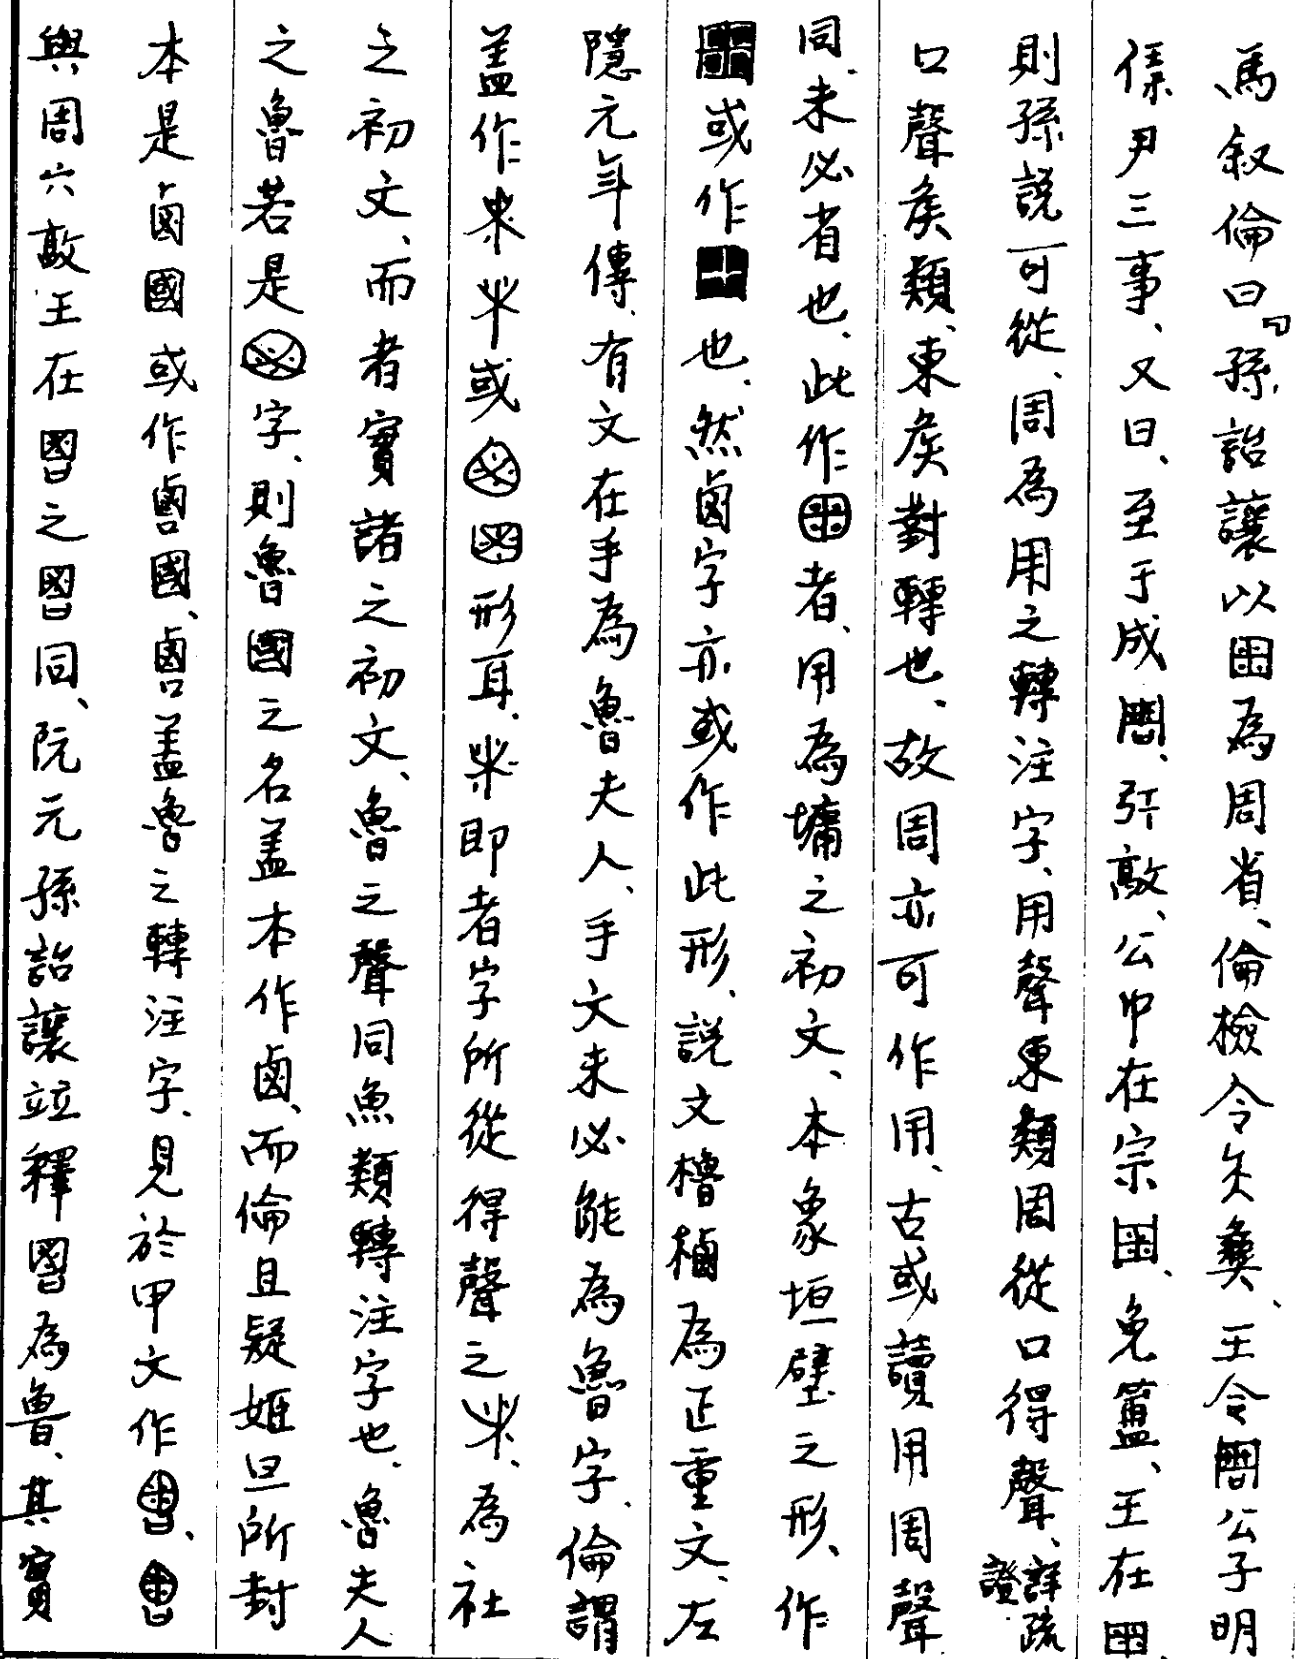 馬叙倫曰『孫詒讓以𤰭為周省、倫檢令矢彝、王令周公子明
僳尹三事、又曰、至于成周、弘𣪘、公中在宗周、免簠、王在周、
則孫說可從、周為用之轉注字、用聲東類周從口得聲、詳疏證
口聲矦類、東矦對轉也、故周亦可作用、古或讀用周聲
同、未必省也、此作者、用為墉之初文、本象垣壁之形、作
或作也、然鹵字亦或作此形、說文櫓樐為正重文、左
隱元年傳、有文在手為魯夫人、手文未必能為魯字、倫謂
蓋作或形耳、即者字所從得聲之、為社
之初文、而者實諸之初文、魯之聲同魚類轉注字也、魯夫人
之魯若是字、則魯國之名蓋本作鹵、而倫且疑姬旦所封
本是鹵國或作國、蓋魯之轉注字、見於甲文作、
與周六𣪘王在之同、阮元孫詒讓竝釋為魯、其實